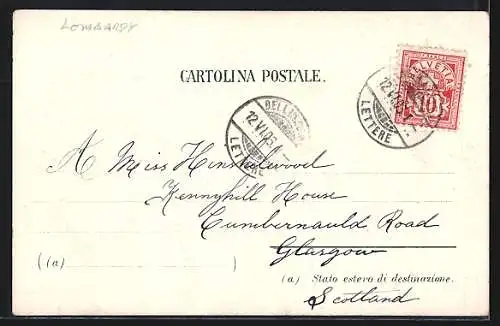 LOMBARDY
CARTOLINA POSTALE.
HELVETIA
10
12.VI.03
LETTERE
12.VI.03
LETTERE
A Miss Henshelwood
Kennyhill House
Cumbernauld Road
Glasgow
((a)
)
(a.) Stato estero di destinazione.
Scotland